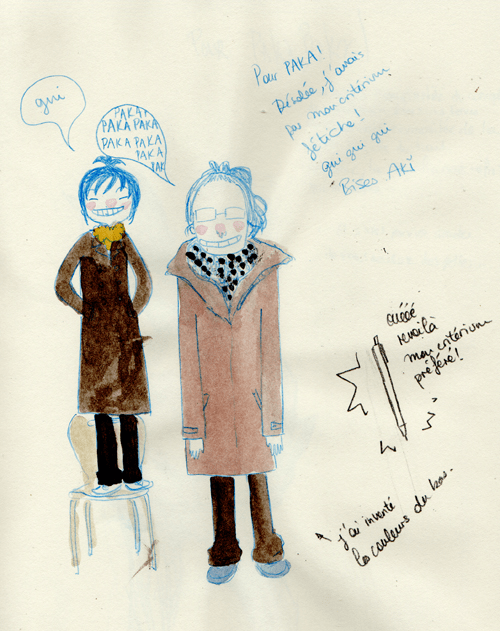 gui
PAKA
PAKA PAKA
PAKA PAKA
PAKA
PAK
Pour PAKA!
Désolée, j'avais
pas mon critérium
fétiche!
gui gui gui
Bises AKI
ouééé
revoilà
mon critérium
préféré!
j'ai inversé
les couleurs du bas.